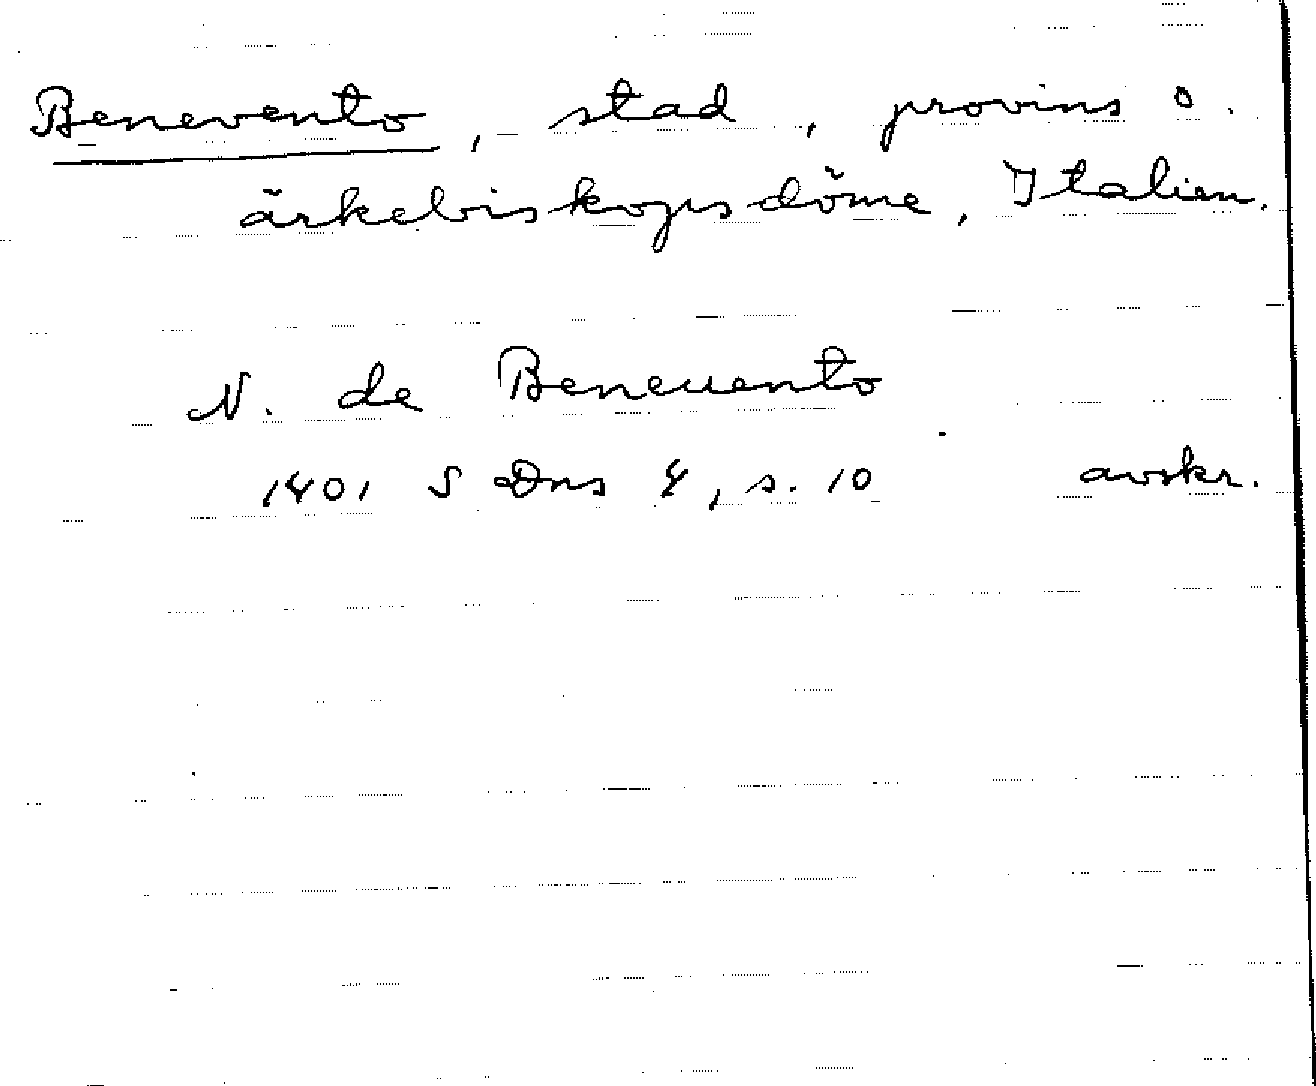 Benevento, stad, provins o.
ärkebiskopsdöme, Italien.
N. de Beneuento
1401 S Dns 4, s. 10 avskr.